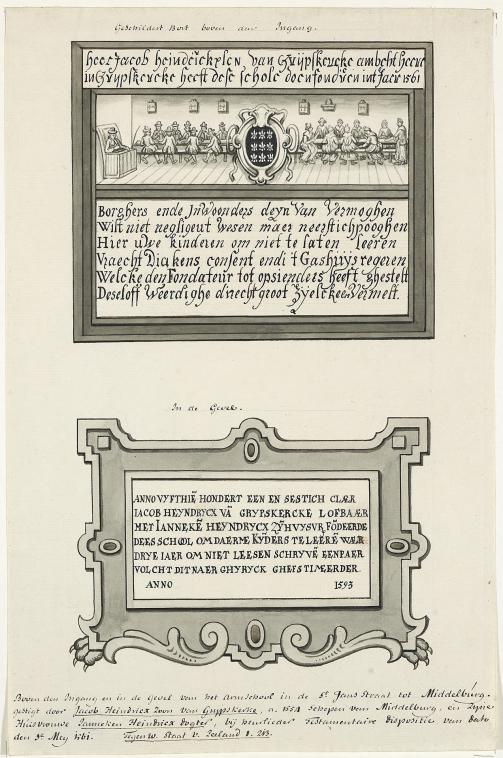 Geschildert Bort boven den Ingang.
heer Jacob heindrickzen, van Grijpskercke ambecht heere
in Grijpskercke heeft dese schole doen fonderen int Jaer 1561
Borghers ende Inwoonders deyn van Vermoghen
Wilt niet negligent wesen maer neerstich pooghen
Hier uwe kinderen om niet te laten leeren
Vraecht Diakens consent endi 't Gashuys regeren
Welcke den Fondateur tot opsienders heeft ghestelt
Deseloff weerdighe
In de Gevel.
ANNO VYFTHIE HONDERT EEN EN SESTICH CLAER
IACOB HEYNDRYCX VA GRYPSKERCKE LOFBAAER
MET IANNEKE HEYNDRYCX ZYHVYSVR FÕDEERDE
DEES SCHOOL OM DAERME KYDERS TE LEERE WAER
DRYE IAER OM NIET LEESEN SCHRYVE EENPAER
VOLCHT DIT NAER GHY RYCK GHEFSTIMEERDER
ANNO 1593
Boven den Ingang en in de Gevel van het Armschool in de St. Jans Straat tot Middelburg.
gestigt door Jacob Heindricx Zoon van Grijpskerke, a. Schepen van Middelburg, en Zijne
Huisvrouwe Janneken Heindricx Dogter, bij heurlieder Testamentaire Dispositie van dato
den 3e. Mey 1561. Tegenw. Staat v. Zeeland 1. 263.